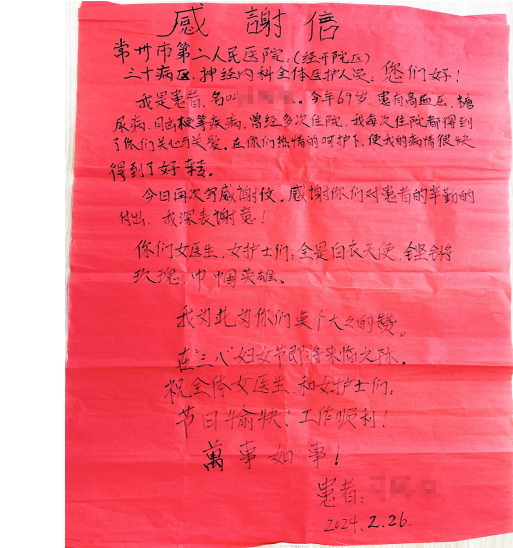 感謝信
常州市第二人民医院,(经开院区)
三十病区,神经内科全体医护人员,您们好!
我是患者,名叫 。今年69岁,患有高血压、糖
尿病、脑梗等疾病,曾经多次住院,我每次住院都得到
了你们关心与关爱。在你们热情的呵护下,使我的病情很快
得到了好转。
今日再次写感谢信,感谢你们对患者的辛勤的
付出,我深表谢意!
你们女医生,女护士们:全是白衣天使,铿锵
玫瑰,巾帼英雄。
我为此为你们点个大大的赞。
在"三八"妇女节即将来临之际,
祝全体女医生,和女护士们:
节日愉快!工作顺利!
萬事如事!
患者:
2024.2.26.